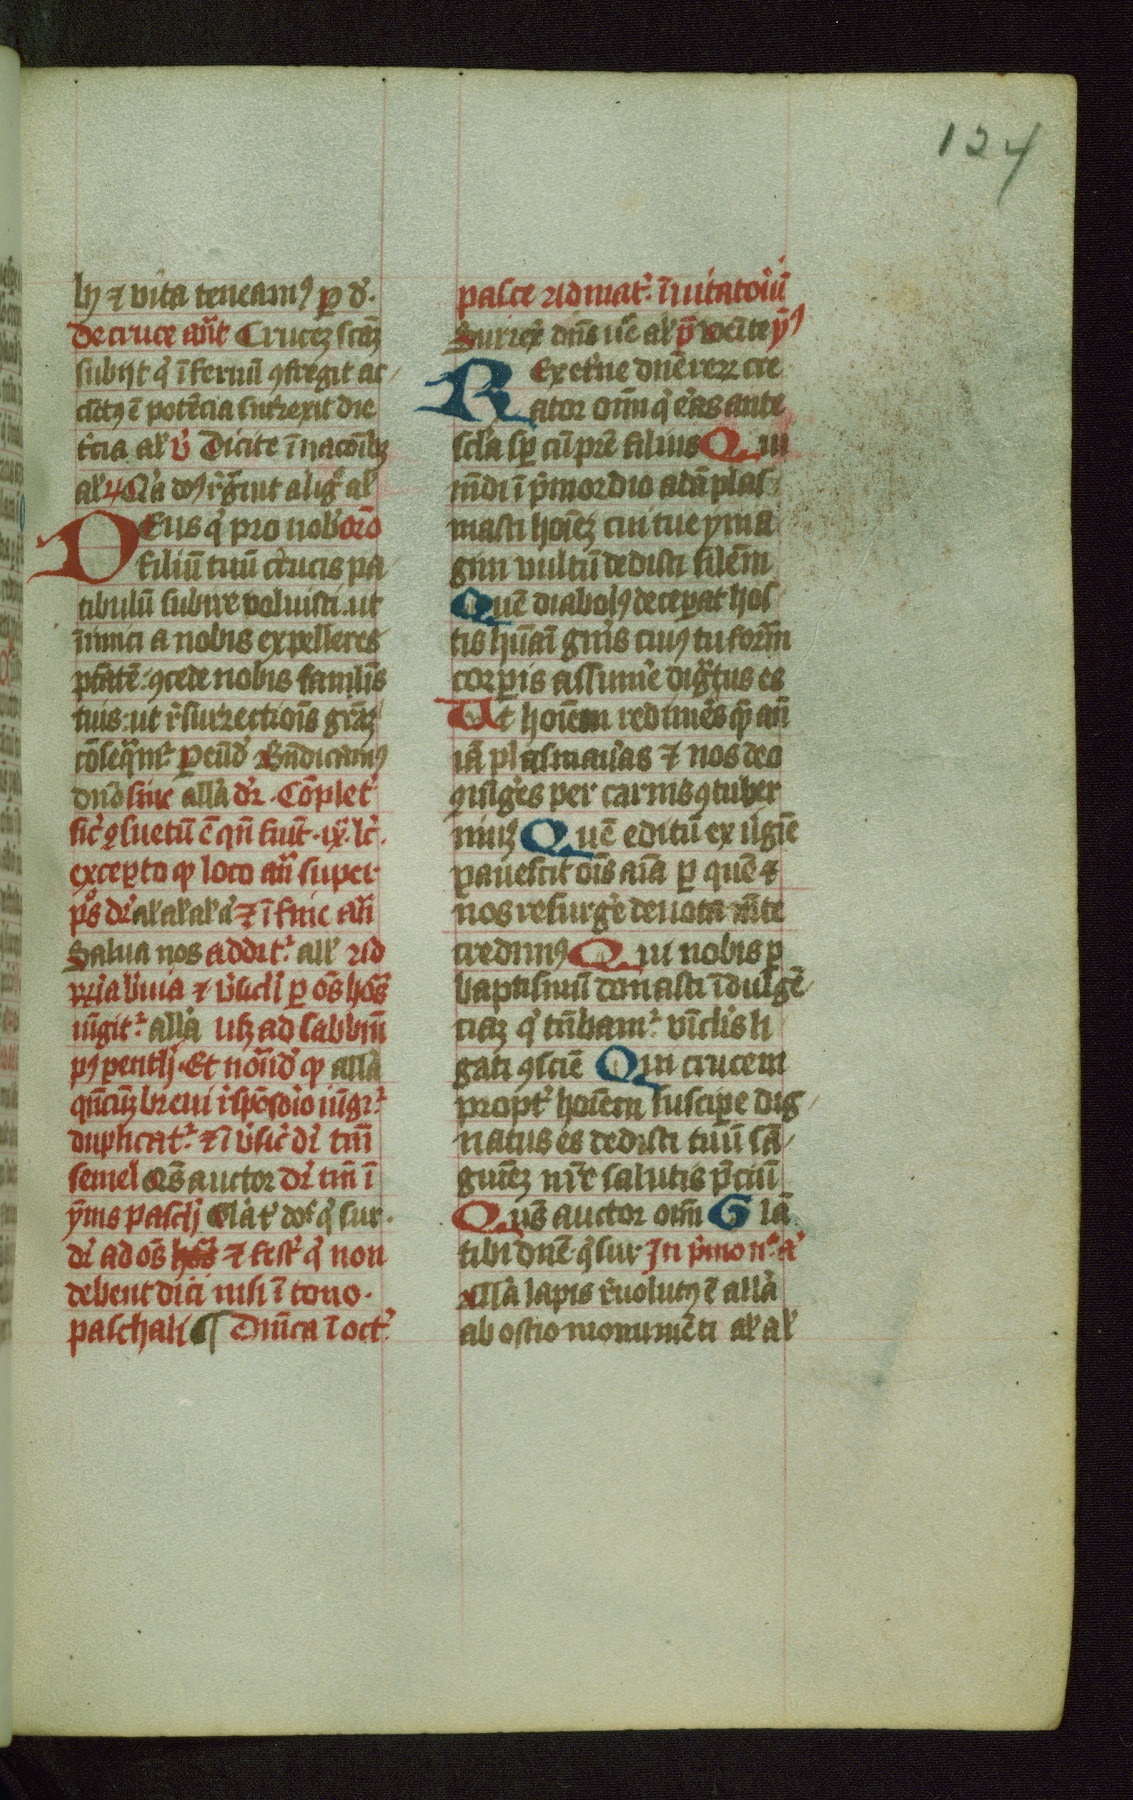 124
lӡ ⁊ vita teneamꝰ ꝑ d̾.
De cruce an̄t Crucez scāz
subijt q̇ īfernū ꝯfregit ac
cīctꝰ ē potēcia surrexit die
t̾cia al̾ v̾ Dicite ī nacōībꝫ
al̾
DEus q̇ pro nob̾ orō
filiū tuū crucis pa
tibulū subire voluisti.ut
inimici a nobis expelleres
ptātē: ꝯcede nobis famul̄s
tuis: ut r̾surrectiōis grāz
cōseq̄m̾ ꝑ eūd̾ Bn̄dicamꝰ
dnō sine all̾a dr̾. Cōplet̾
sic̾ ꝯsuetū ē qn̄ fiūt .ix. lc̾.
excepto ꝙ loco an̄ super
pōs dr̾ al̾ al̾ al̾ a̾ ⁊ ī fine an̄
Salua nos addit̾ all̾ Ad
⁊ ꝟsicl̾ ꝑ oēs hōs
iūgit̾ all̾a usꝫ ad sabbm̄
pꝰ pentħ. Et notād̾ ꝙ all̾a
qn̄cūꝫ breui r̾spōsorio iūgr̾
duplicat̾ ⁊ ī ꝟsic̾ dr̾ tm̄
semel Qs̄ auctor dr̾ tm̄ ī
ym̄s pasch̾ Gl̾a t̾ dn̄e q̇ sur.
dr̾ ad oēs hōs ⁊ fest̾ q̇ non
debent dici nisi ī tono
paschali ¶ Dn̄ica ī oct̾
pasce Ad mat̾. īuitatoriū
Surrex̾ dn̄s ue̾ al̾ p̄s Uenite ym̄ꝰ
REx et̾ne dn̄e reꝝ cre
ator oīm q̇ er̾as ante
sc̾la sp̄ cū pr̄e filius Qui
mūdi ī pmordio adā plas
masti hoīeꝫ cui tue yma
gini vultū dedisti silēm
Quē diabolꝰ deceꝑat hos
tis hūāi gn̾is cuiꝰ tu formā
corꝑis assum̾e dig̾tus es
Ut hoīem redim̾es quē an̄
iā plasmau̾as ⁊ nos deo
ꝯiūg̾es per carnis ꝯtuber
niūꝫ Quē editū ex ūgīe
pauescit oīs aīa ꝑ quē ⁊
nos resurg̾e deuota mēte
credimꝰ Qui nobis ꝑ
baptismū donasti īdulgē
ciaꝫ q̇ tn̄bam̾ vīcl̾is li
gati ꝯsciē Qui crucem
propt̾ hoīem suscipe dig
natus es dedisti tuū sā
guīeꝫ nr̄e salutis p̄ciū
Qus̄ auctor oīm Gl̾a
tibi dn̄e. q̇ sur. In pmo n° a̾
All̾a lapis r̾uolutꝰ ē all̾a
ab ostio monumēti al̾ al̾